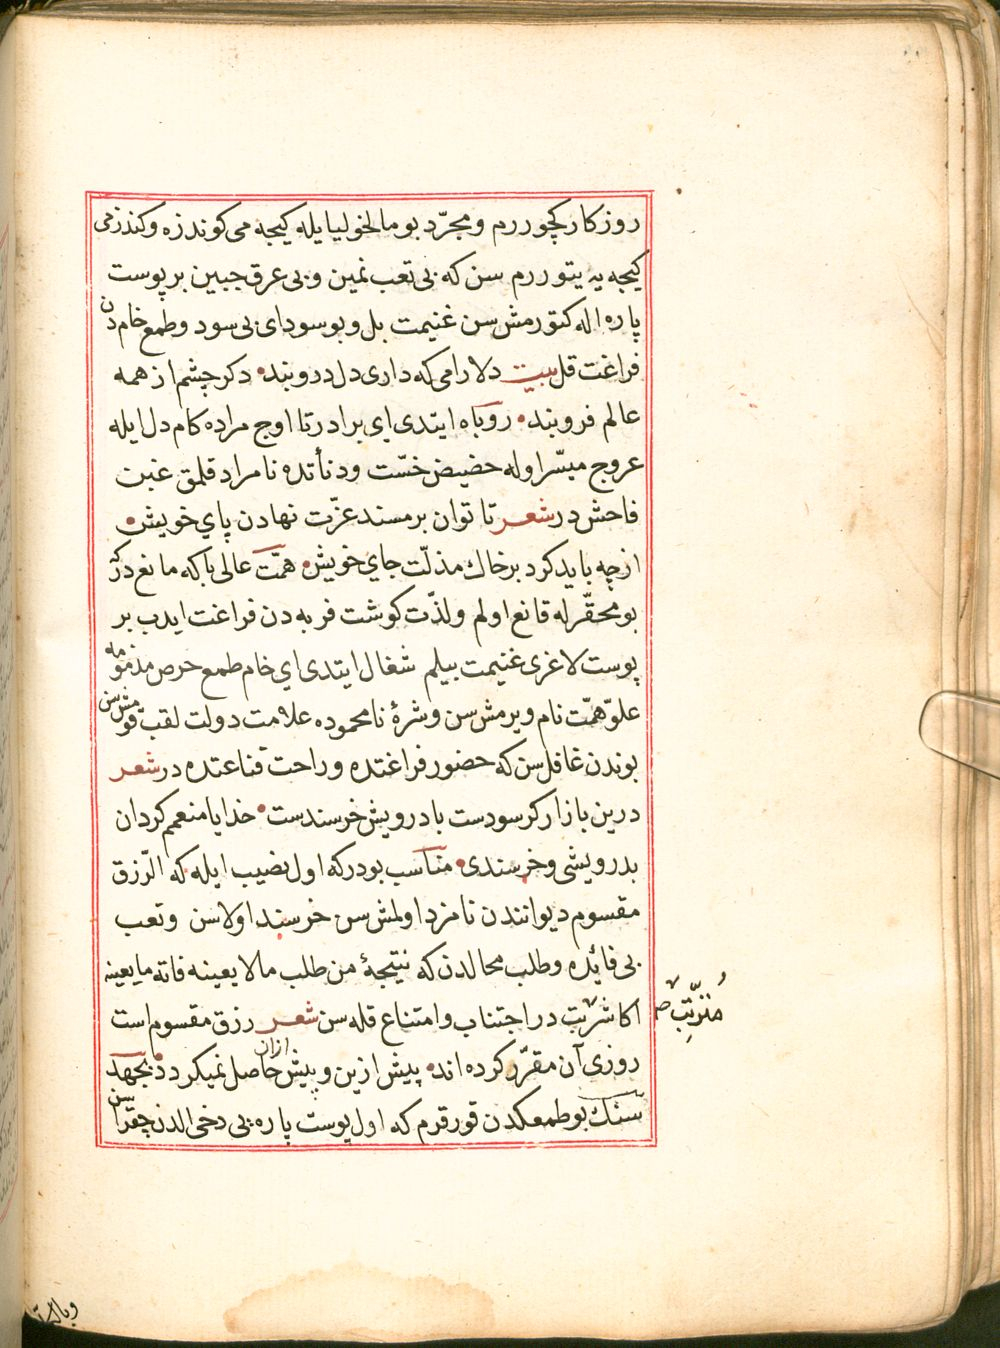 روزكار كچورم و مجرّد بو مالخوليا يله كيجه مى كوندزه و كندزمى
كيجه يه يتوررم سن كه بى تعب يمين و بى عرق جبين بر پوست
پاره اله كتورمش سن غنيمت بل و بو سوداى بى سود و طمع خام دن
فراغت قل بيت دلارامى كه دارى دل درو بند دكر چشم از همه
عالم فرو بند روباه ايتدى اى برادر تا اوج مراده كام دل ايله
عروج ميسّر اوله حضيض خسّت و دنأتده نامراد قلمق غبن
فاحش در شعر تا توان بر مسند عزّت نهادن پاي خويش
از چه بايد كرد بر خاك مذلّت جاي خويش همّت عالى باكه مانع در كه
بو محقّرله قانع اولم و لذّت كوشت فربه دن فراغت ايدب بر
پوست لاغرى غنيمت بيلم شغال ايتدى اي خام طمع حرص مذمومه
علوّ همّت نام ويرمش سن و شرۀ نا محموده علامت دولت لقب قومش سن
بوندن غافل سن كه حضور فراغتده و راحت قناعتده در شعر
درين بازار كر سودست با درويش خرسندست خدايا منعمم كردان
بدرويشى و خرسندى مناسب بودركه اول نصيب ايله كه الرّزق
مقسوم ديوانندن نامزد اولمش سن خرسند اولاسن و تعب
بى فايده و طلب محالدن كه نتيجۀ من طلب ما لا يعينه فاته ما يعينه
اكا مترتّب در اجتناب و امتناع قله سن شعر رزق مقسوم است
مترتّب صح
روزى آن مقرّر كرده اند پيش ازين و بيش ازان حاصل نميكردد بجهد
سنك بو طمعكدن قورقرم كه اول پوست پاره بى دخى الدن چقراسن